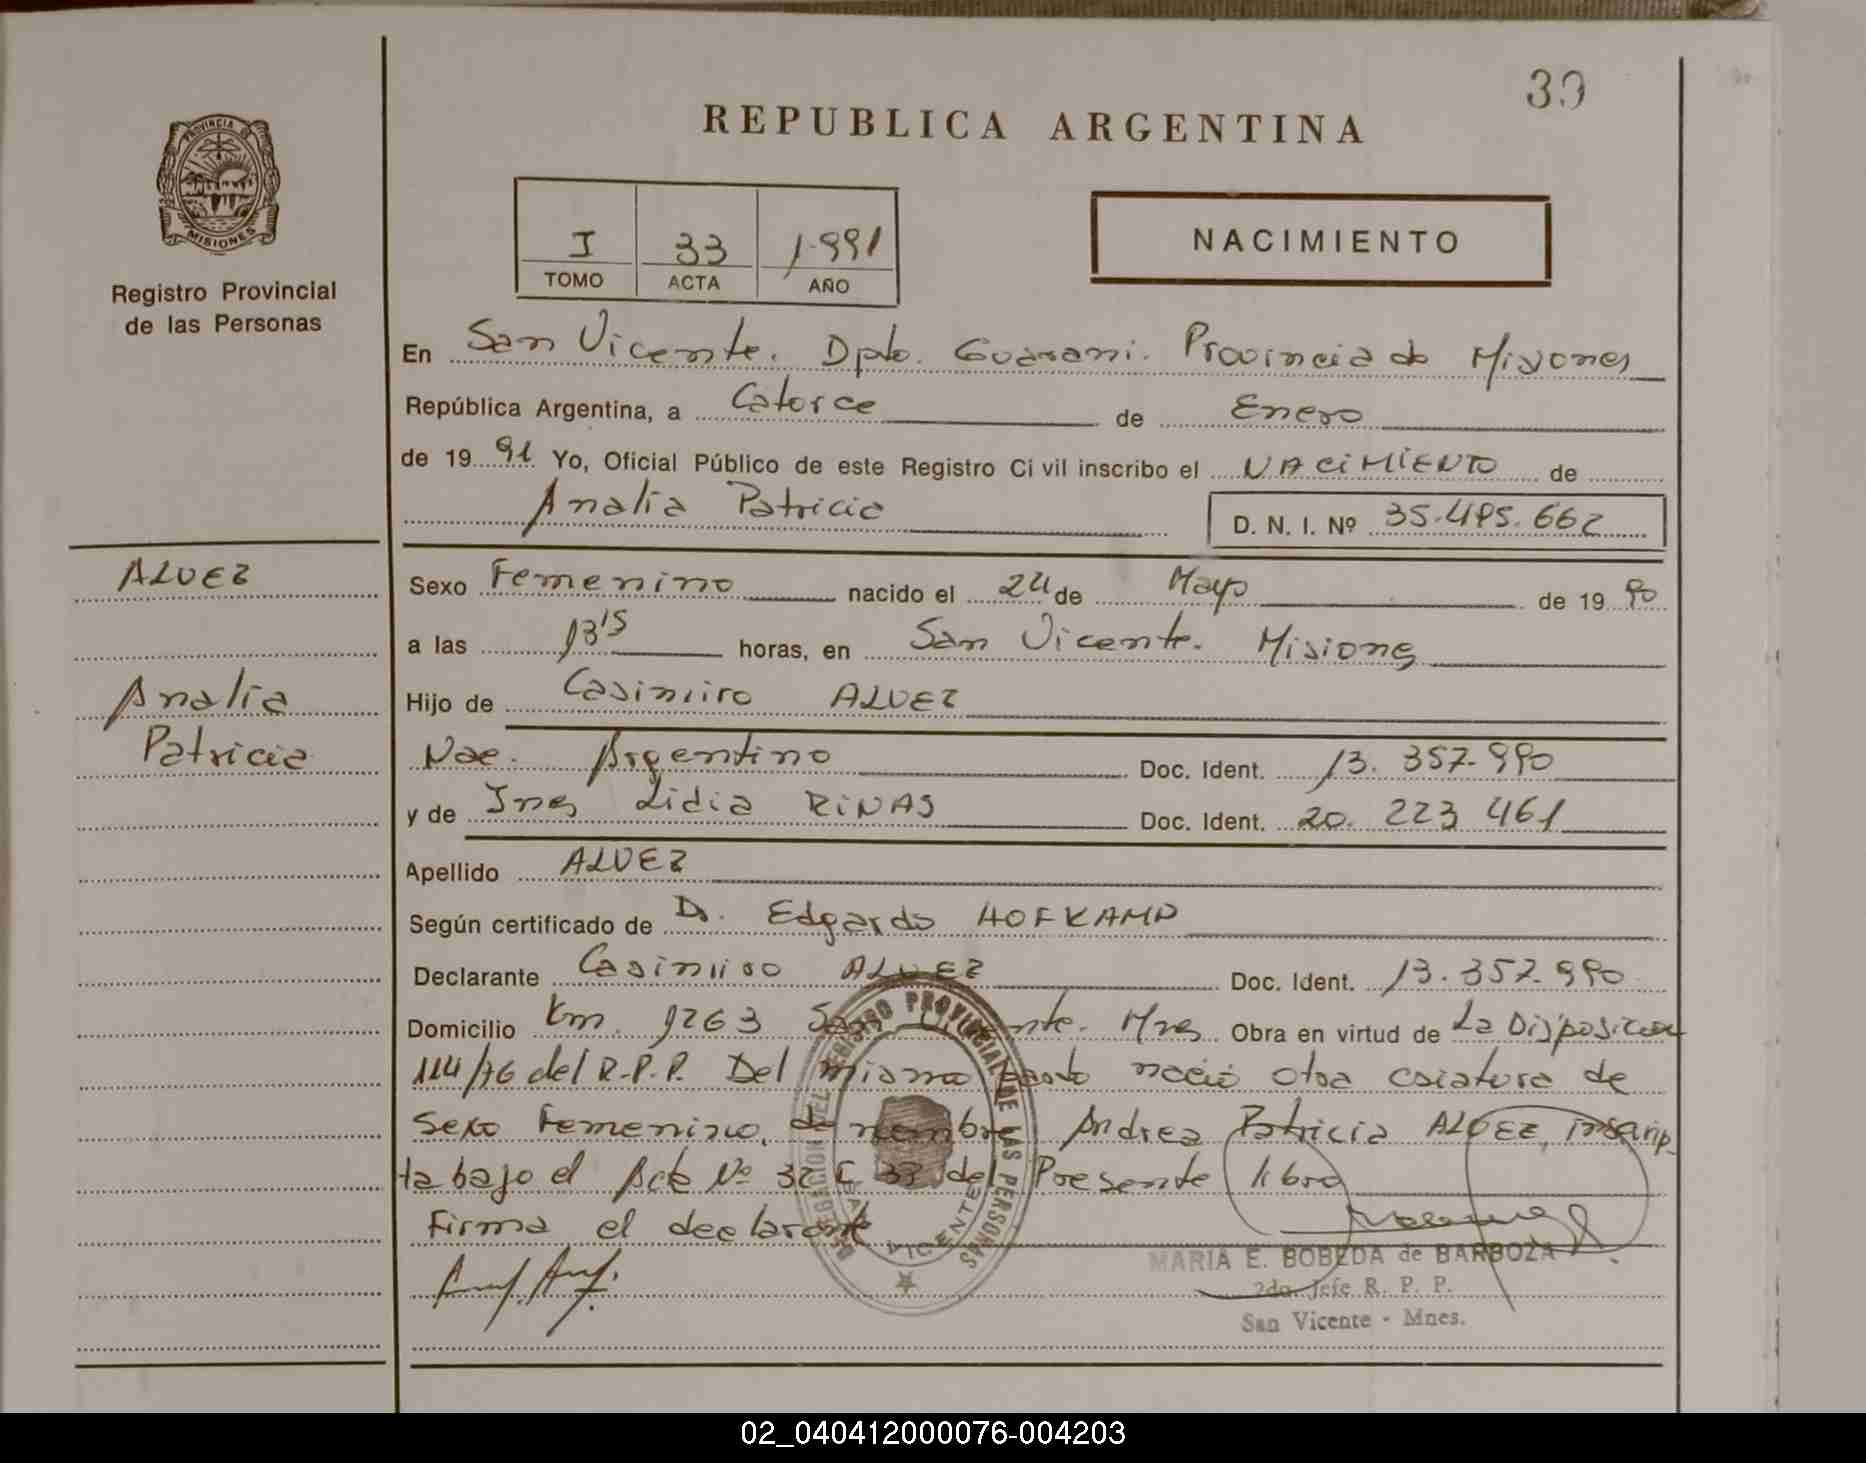 39
REPUBLICA ARGENTINA
PROVINCIA DE
MISIONES
Registro Provincial
de las Personas
I 33 1.991
TOMO ACTA AÑO
NACIMIENTO
En San Vicente. Dpto. Guarani. Provincia de Misiones
República Argentina, a Catorce de Enero
de 19 91 Yo, Oficial Público de este Registro Civil inscribo el NACIMIENTO de
Analia Patricia D. N. I. Nº 35.495.662
ALVEZ
Analia
Patricia
Sexo Femenino nacido el 24 de Mayo de 19 90
a las 13'15 horas, en San Vicente. Misiones
Hijo de Casimiro ALVEZ
Nac. Argentino Doc. Ident. 13. 357.990
y de Ines Lidia RINAS Doc. Ident. 20. 223 461
Apellido ALVEZ
Según certificado de Dr. Edgardo HOFKAMP
Declarante Casimiro ALVEZ Doc. Ident. 13.357.990
Domicilio Km. 1263 San Vicente. Mnes Obra en virtud de La Disposicion
114/76 del R.P.P. Del mismo parto nació otra criatura de
Sexo Femenino, de nombre Andrea Patricia ALVEZ, inscrip
ta bajo el Acta Nº 32 del Presente libro
Firma el declarante
DELEGACION DEL REGISTRO PROVINCIAL DE LAS PERSONAS
SAN VICENTE
MARIA E. BOBEDA de BARBOZA
2do. Jefe R. P. P.
San Vicente - Mnes.
02_040412000076-004203